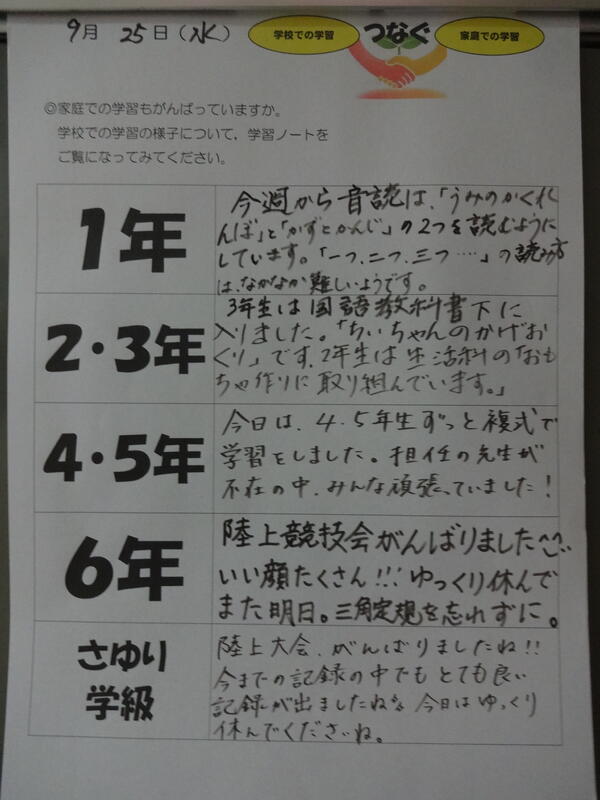 9月 25日(水)
学校での学習
つなぐ
家庭での学習
◎家庭での学習もがんばっていますか。
学校での学習の様子について,学習ノートを
ご覧になってみてください。
1年
今週から音読は、「うみのかくれ
んぼ」と「かずとかんじ」の2つを読むように
しています。「一つ、二つ、三つ……」の読み方
は、なかなか難しいようです。
2・3年
3年生は国語教科書下に
入りました。「ちいちゃんのかげお
くり」です。2年生は生活科の「おも
ちゃ作りに取り組んでいます。」
4・5年
今日は、4・5年生ずっと複式で
学習をしました。担任の先生が
不在の中、みんな頑張っていました!
6年
陸上競技会がんばりました^^
いい顔たくさん!!!ゆっくり休んで
また明日。三角定規を忘れずに。
さゆり
学級
陸上大会、がんばりましたね!!
今までの記録の中でもとても良い
記録が出ましたね。今日はゆっくり
休んでくださいね。